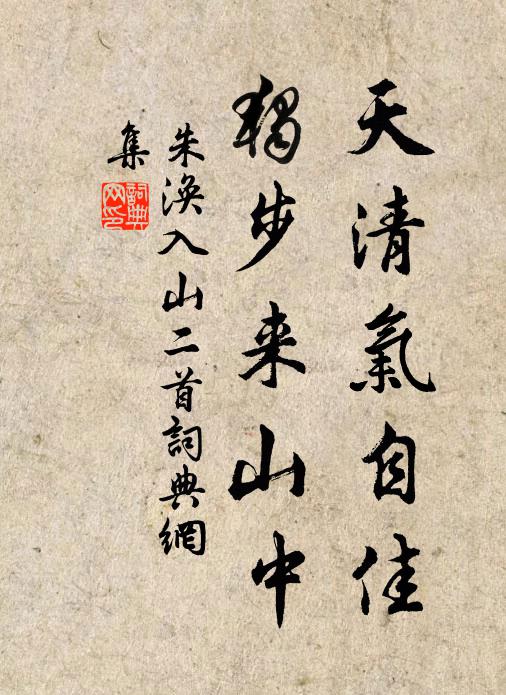 天清氣自佳
獨步来山中
朱渙入山二首詞典網
集
詞典
网印